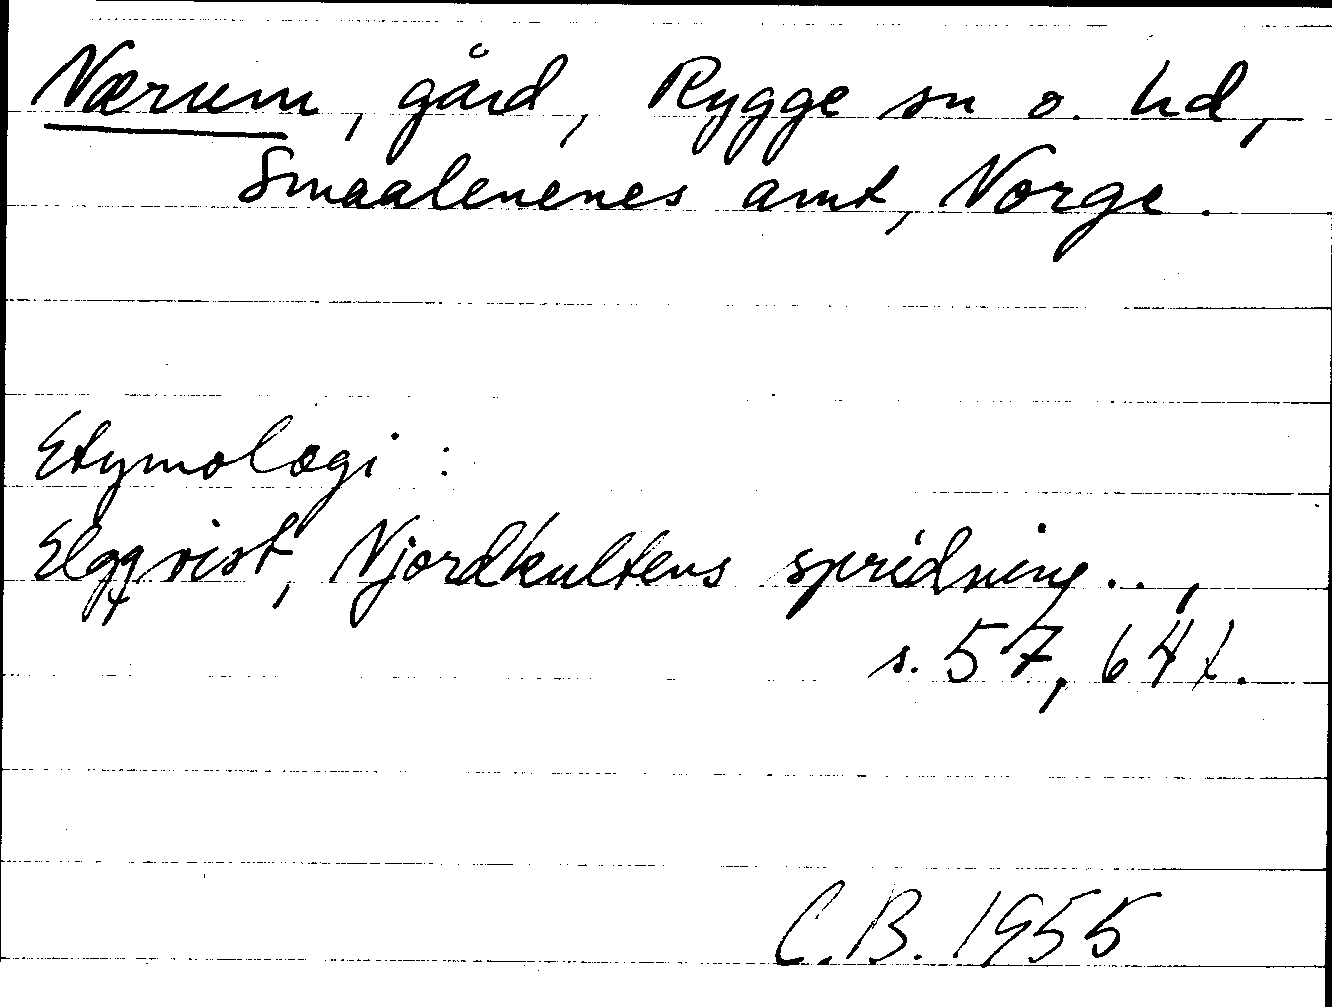 Nærum, gård, Rygge sn o. hd,
Smaalenenes amt, Norge.
Etymologi:
Elgqvist, Njordkultens spridning..,
s. 57, 64 f.
C.B. 1955